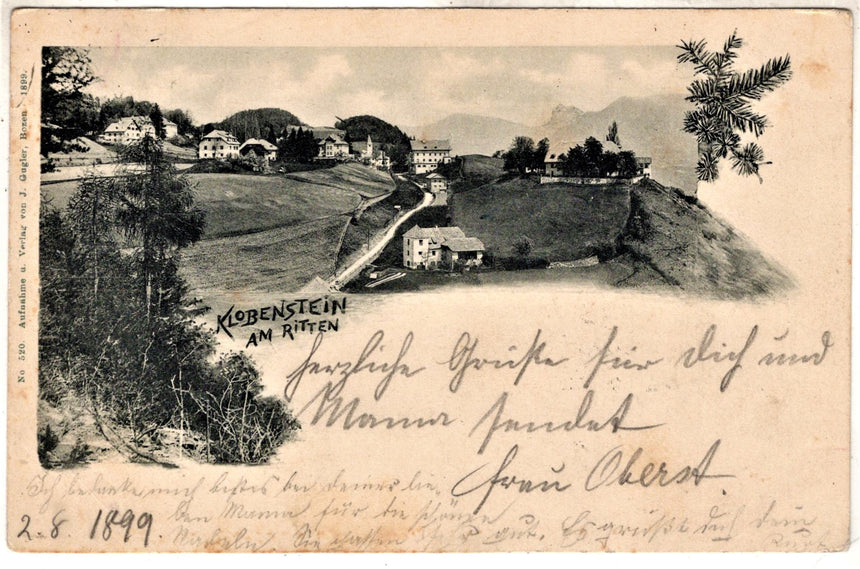 No 520. Aufnahme u. Verlag von J. Gugler, Bozen 1899.
KLOBENSTEIN
AM RITTEN
herzliche Grüße für Dich und
Mama sendet
Frau Oberst
Ich bedanke mich bestens bei Deiner lie
ben Mama für die schöne
Sie gut. Es grüßt dich dein
2.8. 1899